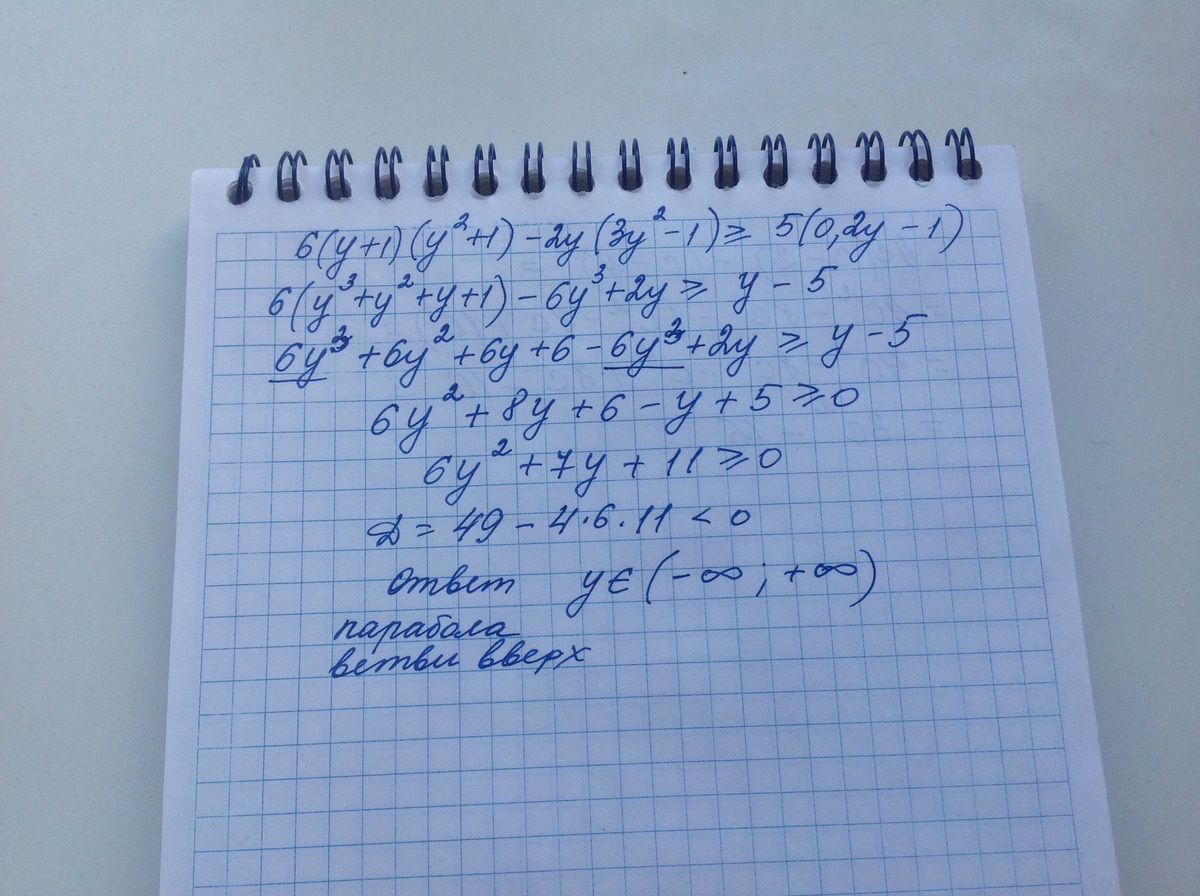 6(y+1)(y²+1) - 2y(3y²-1) ≥ 5(0,2y - 1)
6(y³+y²+y+1) - 6y³+2y ≥ y - 5
6y³ + 6y² + 6y + 6 - 6y³ + 2y ≥ y - 5
6y² + 8y + 6 - y + 5 ≥ 0
6y² + 7y + 11 ≥ 0
D = 49 - 4·6·11 < 0
ответ y∈(-∞; +∞)
парабола
ветви вверх